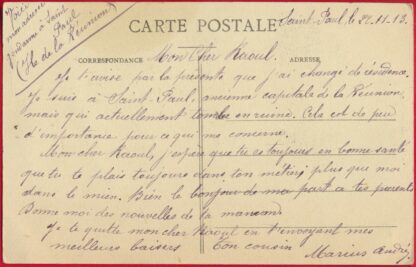 Voici
mon adresse
Gendarme à Saint
Paul
(Ile de la Réunion)
CARTE POSTALE
Saint-Paul le 22.11.13.
CORRESPONDANCE
ADRESSE
Mon Cher Raoul.
Je t'avise par la présente que j'ai changé de résidence.
Je suis à Saint-Paul, ancienne capitale de la Réunion,
mais qui actuellement tombe en ruine. Cela est de peu
d'importance pour ce qui me concerne.
Mon cher Raoul, j'espère que tu es toujours en bonne santé
que tu te plais toujours dans ton métier plus que moi
dans le mien. Bien le bonjour de ma part à tes parents
Donne moi des nouvelles de la
Je te quitte mon cher Raoul en t'envoyant mes
meilleurs baisers Ton cousin
Marius